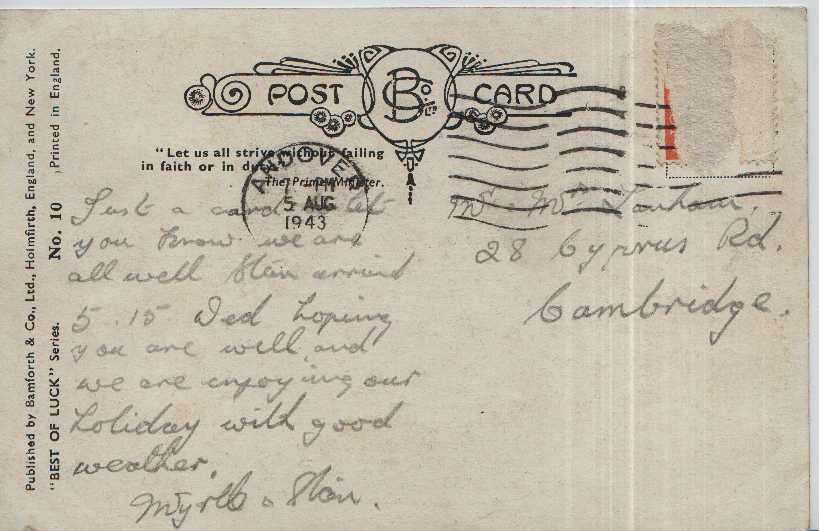 Published by Bamforth & Co., Ltd., Holmfirth, England, and New York.
"BEST OF LUCK" Series. No. 10 Printed in England.
POST CARD
B Co. LTD
"Let us all strive without failing
in faith or in duty"
The Prime Minister.
ANDOVER
PM
5 AUG
1943
Just a card to let
you know we are
all well Stan arrived
5.15 Wed hoping
you are well, and
we are enjoying our
holiday with good
weather.
Myrtle & Stan.
Mr Mrs
28 Cyprus Rd.
Cambridge.